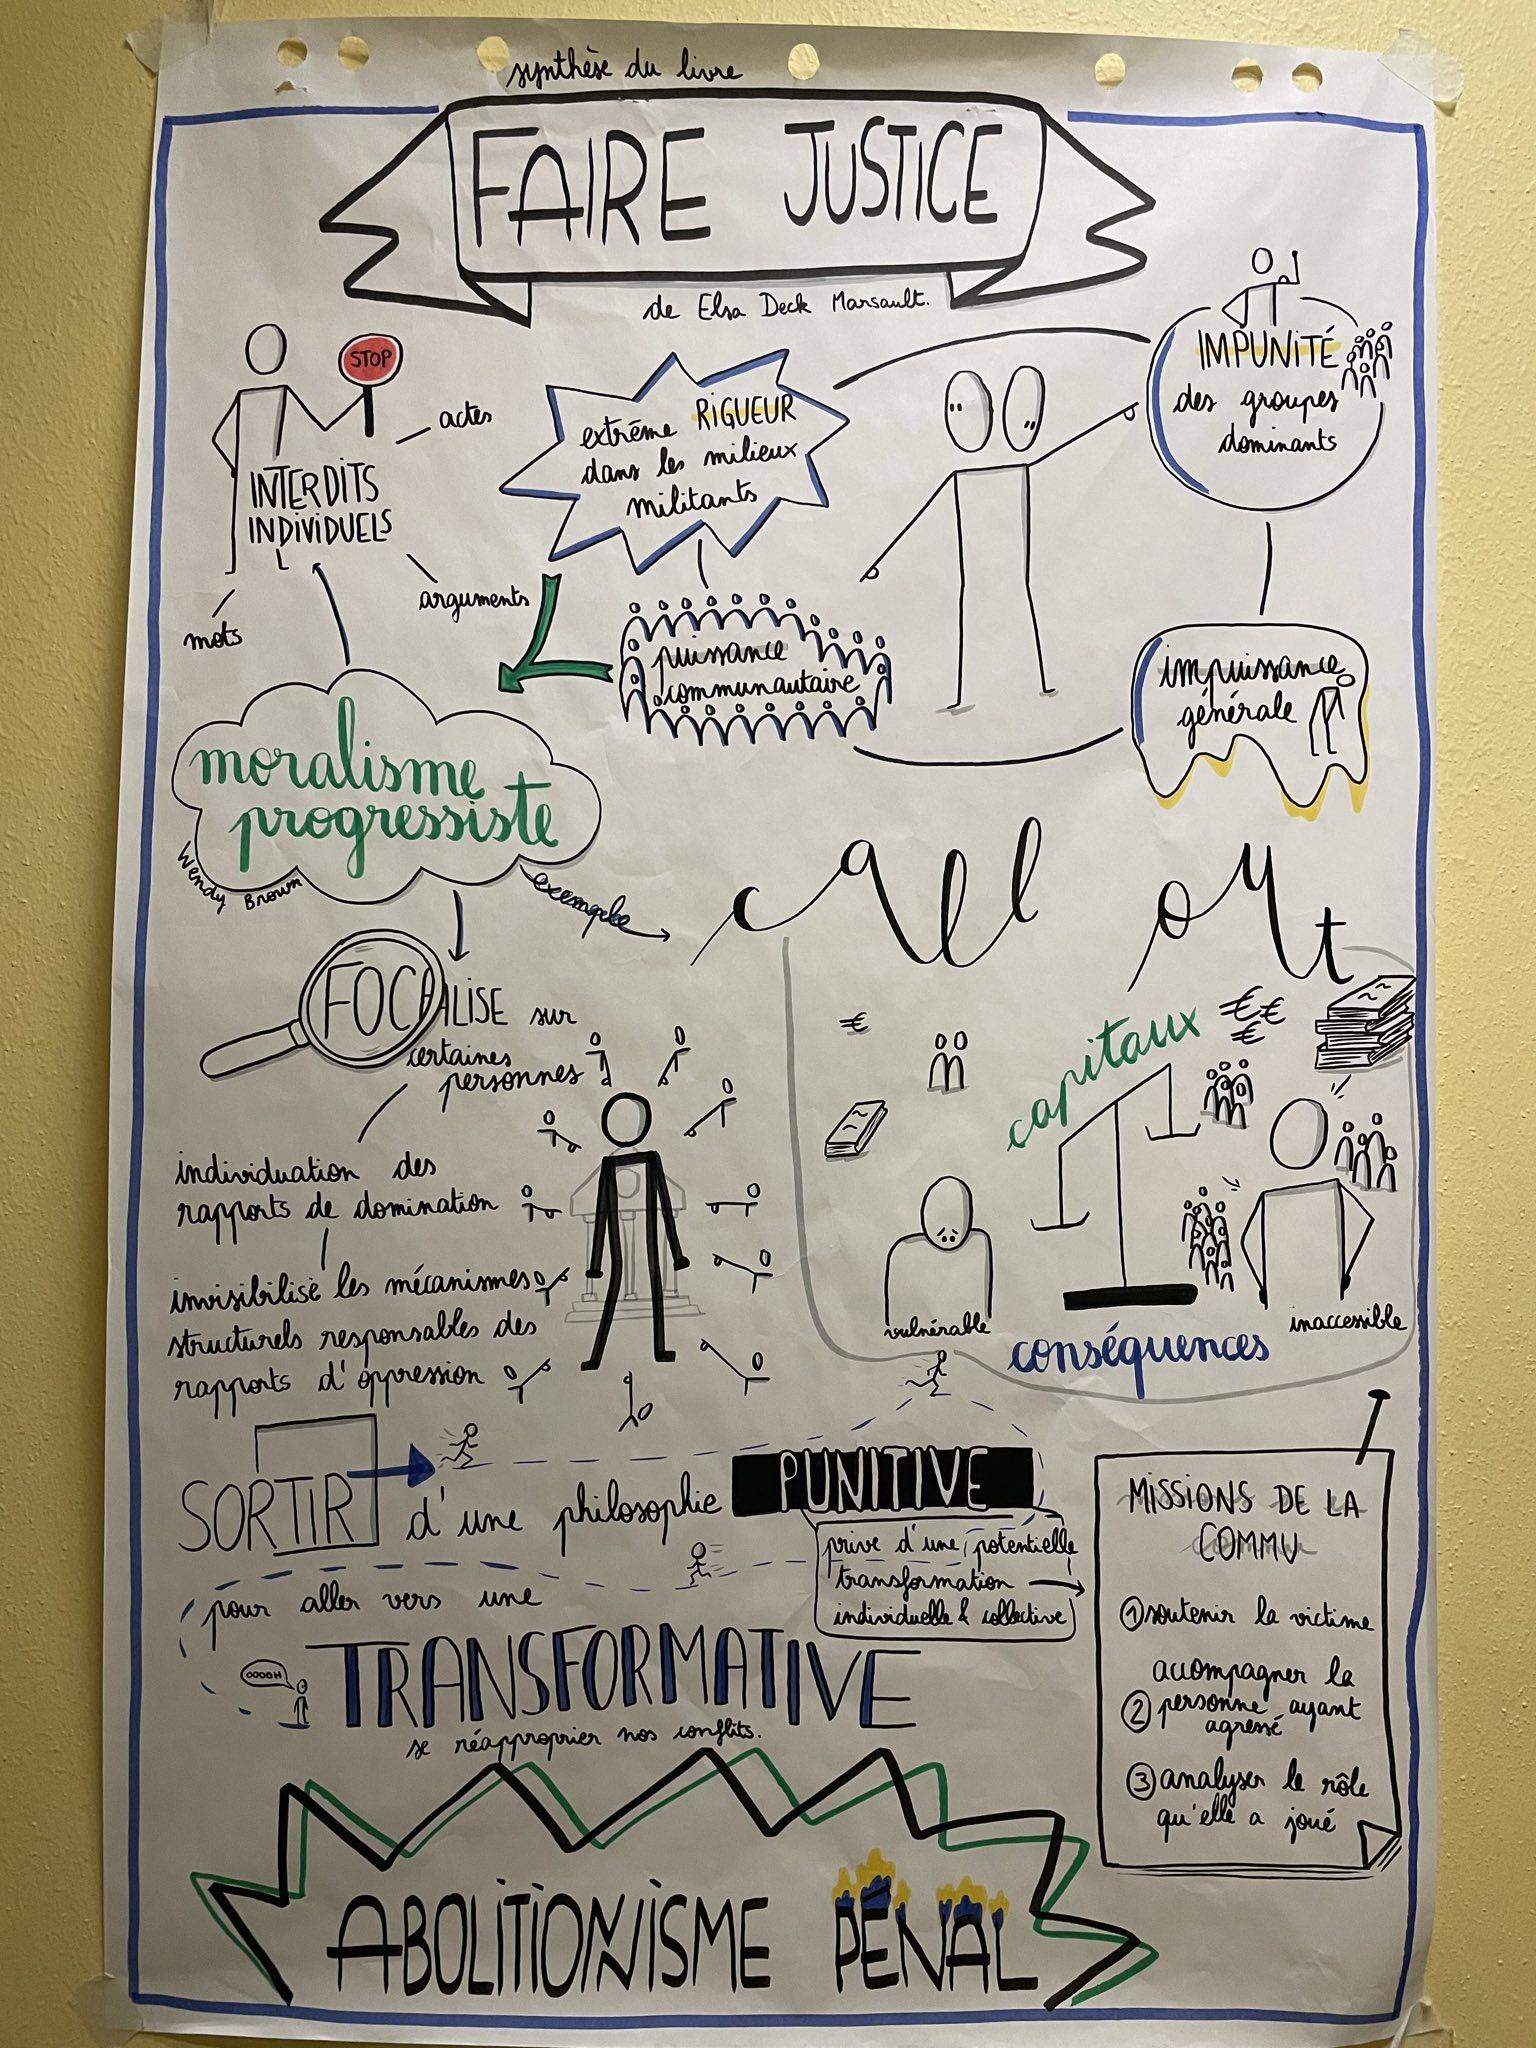 synthèse du livre
FAIRE JUSTICE
de Elsa Deck Marsault.
STOP
actes
INTERDITS
INDIVIDUELS
arguments
mots
extrême RIGUEUR
dans les milieux
militants
IMPUNITÉ
des groupes
dominants
puissance
communautaire
impuissance
générale
moralisme
progressiste
Wendy Brown
exemple
call out
FOCALISE sur
certaines
personnes
individuation des
rapports de domination
invisibilise les mécanismes
structurels responsables des
rapports d'oppression
€
capitaux
€€
€
vulnérable
inaccessible
conséquences
SORTIR d'une philosophie PUNITIVE
prive d'une potentielle
transformation
individuelle & collective
pour aller vers une
OOOOH
TRANSFORMATIVE
se réapproprier nos conflits.
MISSIONS DE LA
COMMU
① soutenir la victime
accompagner la
② personne ayant
agressé
③ analyser le rôle
qu'elle a joué
ABOLITIONNISME PÉNAL